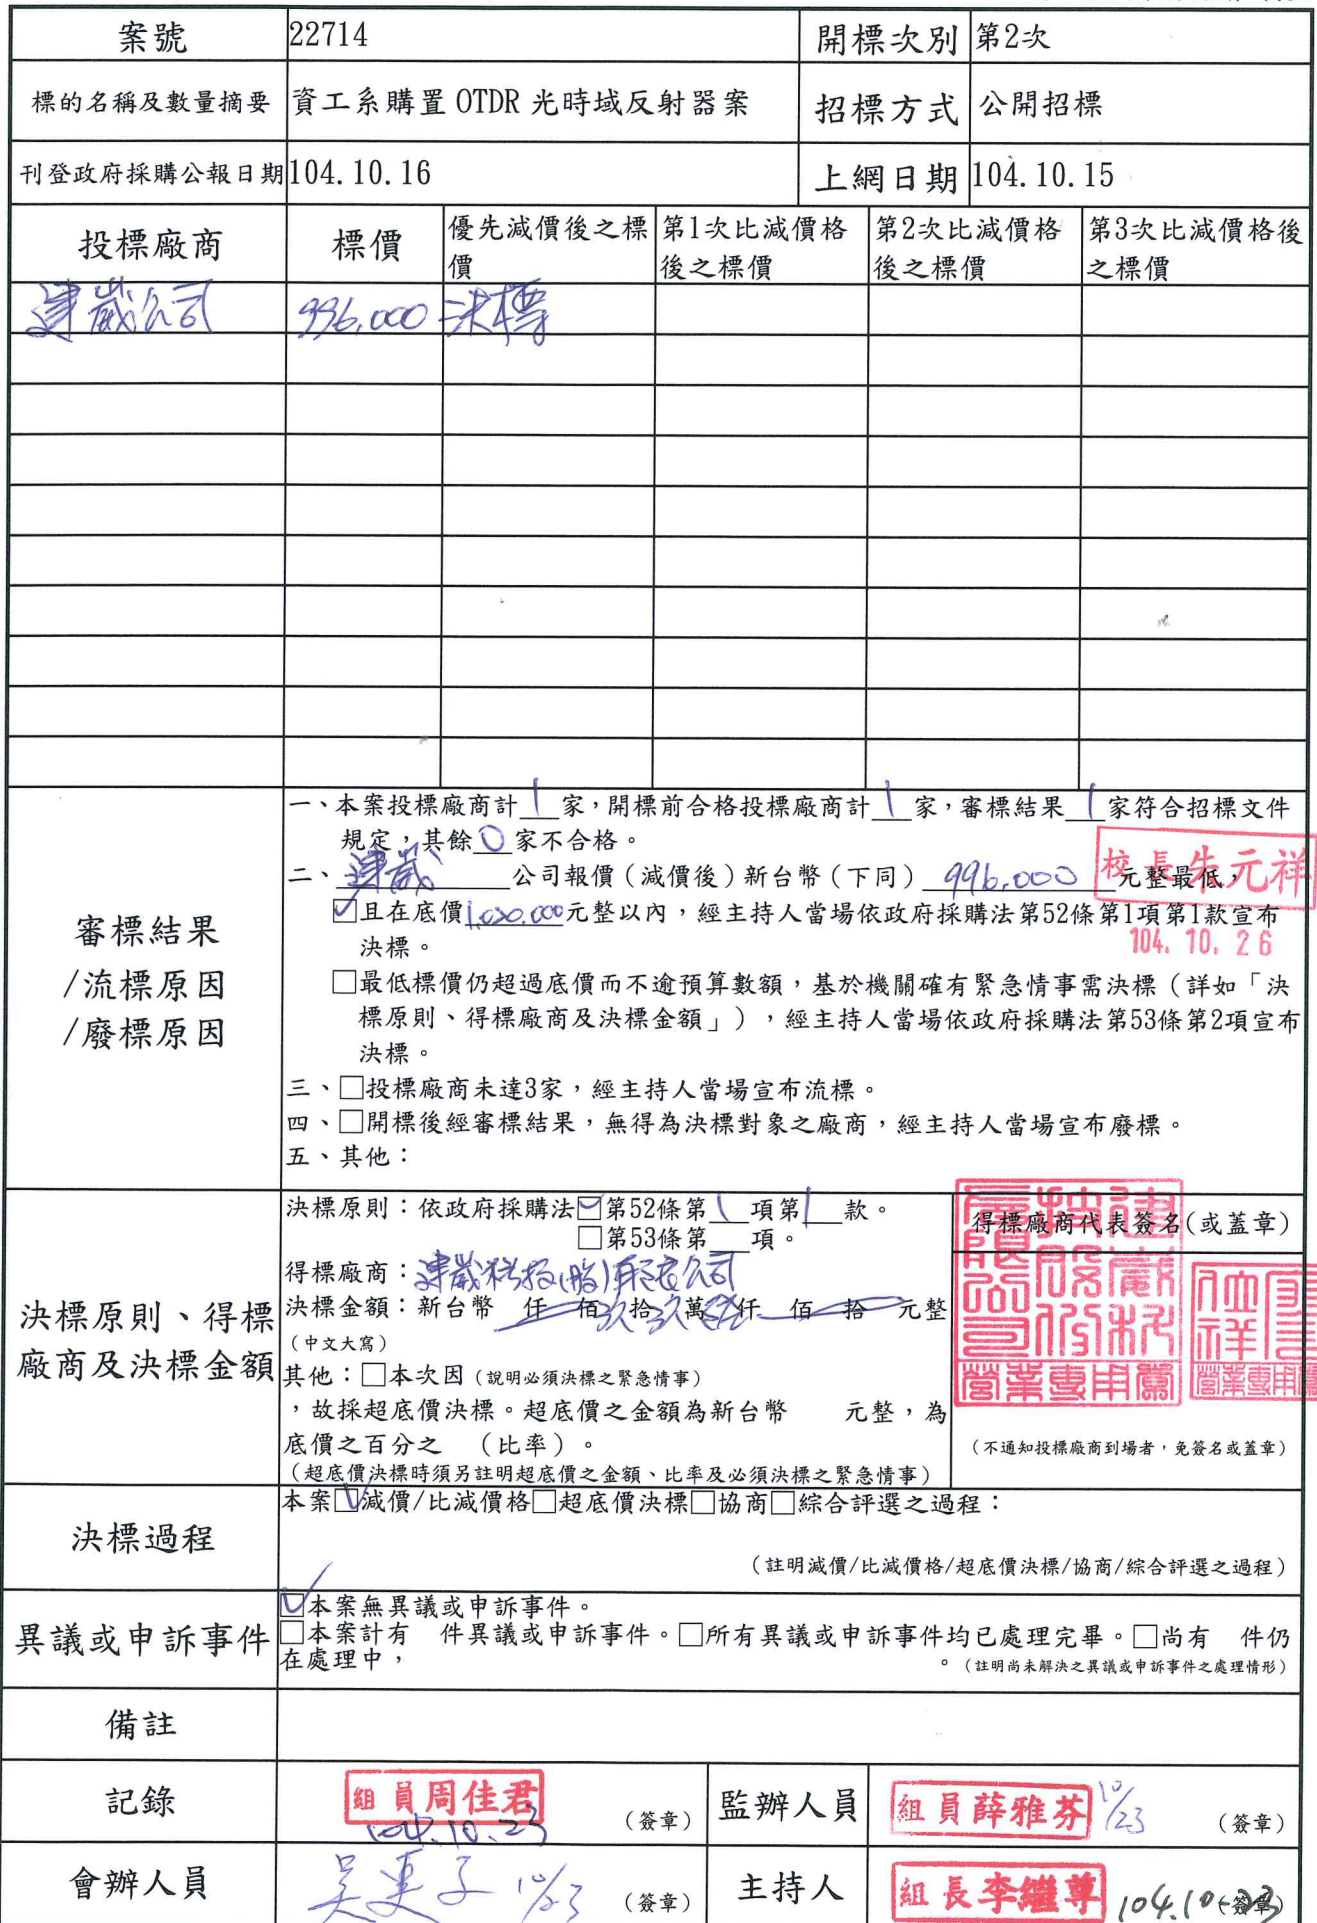 案號 22714 開標次別 第2次
標的名稱及數量摘要 資工系購置 OTDR 光時域反射器案 招標方式 公開招標
刊登政府採購公報日期 104.10.16 上網日期 104.10.15
投標廠商 標價 優先減價後之標價 第1次比減價格後之標價 第2次比減價格後之標價 第3次比減價格後之標價
建崴公司 996,000 決標
審標結果
/流標原因
/廢標原因
一、本案投標廠商計1家,開標前合格投標廠商計1家,審標結果1家符合招標文件
規定,其餘0家不合格。
二、建崴公司報價(減價後)新台幣(下同)996,000元整最低,
校長朱元祥
☑且在底價1,020,000元整以內,經主持人當場依政府採購法第52條第1項第1款宣布
決標。
104.10.26
□最低標價仍超過底價而不逾預算數額,基於機關確有緊急情事需決標(詳如「決
標原則、得標廠商及決標金額」),經主持人當場依政府採購法第53條第2項宣布
決標。
三、□投標廠商未達3家,經主持人當場宣布流標。
四、□開標後經審標結果,無得為決標對象之廠商,經主持人當場宣布廢標。
五、其他:
決標原則、得標
廠商及決標金額
決標原則:依政府採購法☑第52條第1項第1款。
□第53條第 項。
得標廠商:建崴科技(股)有限公司
決標金額:新台幣 仟 佰玖拾玖萬陸仟 佰 拾 元整
(中文大寫)
其他:□本次因(說明必須決標之緊急情事)
,故採超底價決標。超底價之金額為新台幣 元整,為
底價之百分之 (比率)。
(超底價決標時須另註明超底價之金額、比率及必須決標之緊急情事)
得標廠商代表簽名(或蓋章)
建崴科技股份有限公司
營業專用章
營業專用章
(不通知投標廠商到場者,免簽名或蓋章)
決標過程
本案☑減價/比減價格□超底價決標□協商□綜合評選之過程:
(註明減價/比減價格/超底價決標/協商/綜合評選之過程)
異議或申訴事件
☑本案無異議或申訴事件。
□本案計有 件異議或申訴事件。□所有異議或申訴事件均已處理完畢。□尚有 件仍
在處理中, 。(註明尚未解決之異議或申訴事件之處理情形)
備註
記錄 組員周佳君 104.10.23 (簽章) 監辦人員 組員薛雅芬 10/23 (簽章)
會辦人員 10/23 (簽章) 主持人 組長李繼尊 104.10.23 (簽章)